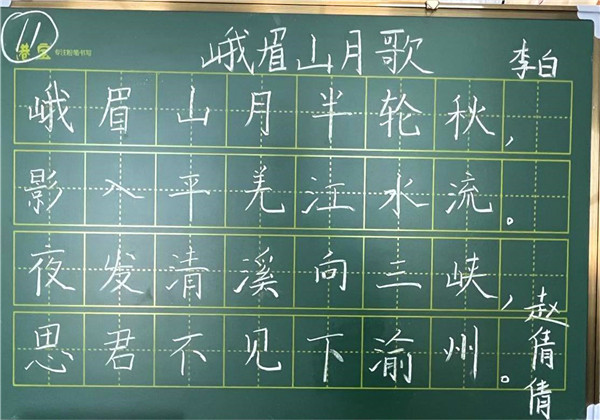 11
专注粉笔书写
峨眉山月歌 李白
峨眉山月半轮秋，
影入平羌江水流。
夜发清溪向三峡，
思君不见下渝州。
赵倩倩